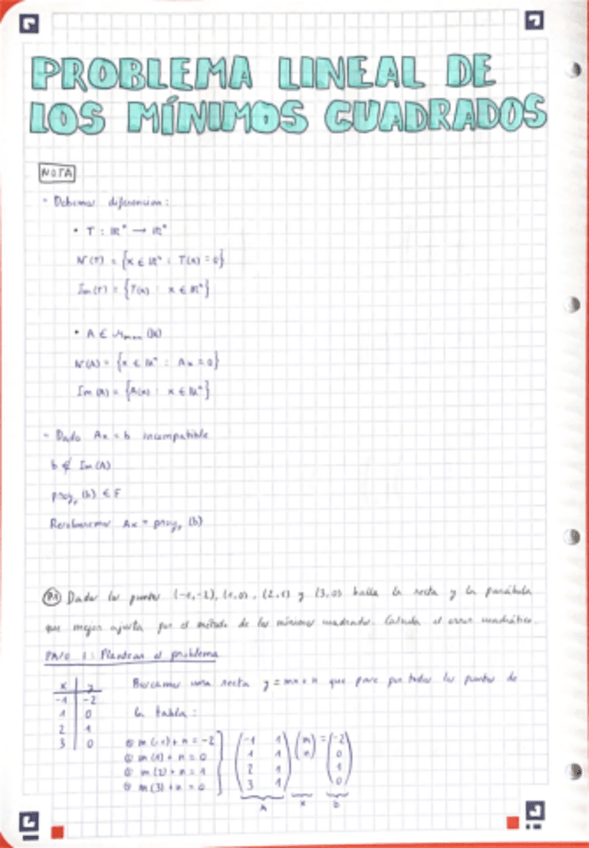 PROBLEMA LINEAL DE
LOS MÍNIMOS CUADRADOS
NOTA
- Debemos diferenciar:
• T : ℝⁿ → ℝⁿ
N(T) = {x ∈ ℝⁿ : T(x) = 0}
Im(T) = {T(x) : x ∈ ℝⁿ}
• A ∈ (ℝ)
N(A) = {x ∈ ℝⁿ : Ax = 0}
Im(A) = {A(x) : x ∈ ℝⁿ}
- Dado Ax = b incompatible
b ∉ Im(A)
proy_F (b) ∈ F
Ax = proy_F (b)
P1 Dados los puntos (-1,-2), (1,0), (2,1) y (3,0) halla la recta y la parábola
que mejor ajusta por el método de los mínimos cuadrados. Calcula el error cuadrático.
PASO 1: Plantear el problema
x y
-1 -2
1 0
2 1
3 0
Buscamos una recta y = mx + n que pase por todos los puntos de
la tabla:
① m(-1) + n = -2
② m(1) + n = 0
③ m(2) + n = 1
④ m(3) + n = 0
(-1 1) (m) = (-2)
(1 1) (n) (0)
(2 1) (1)
(3 1) (0)
A x b